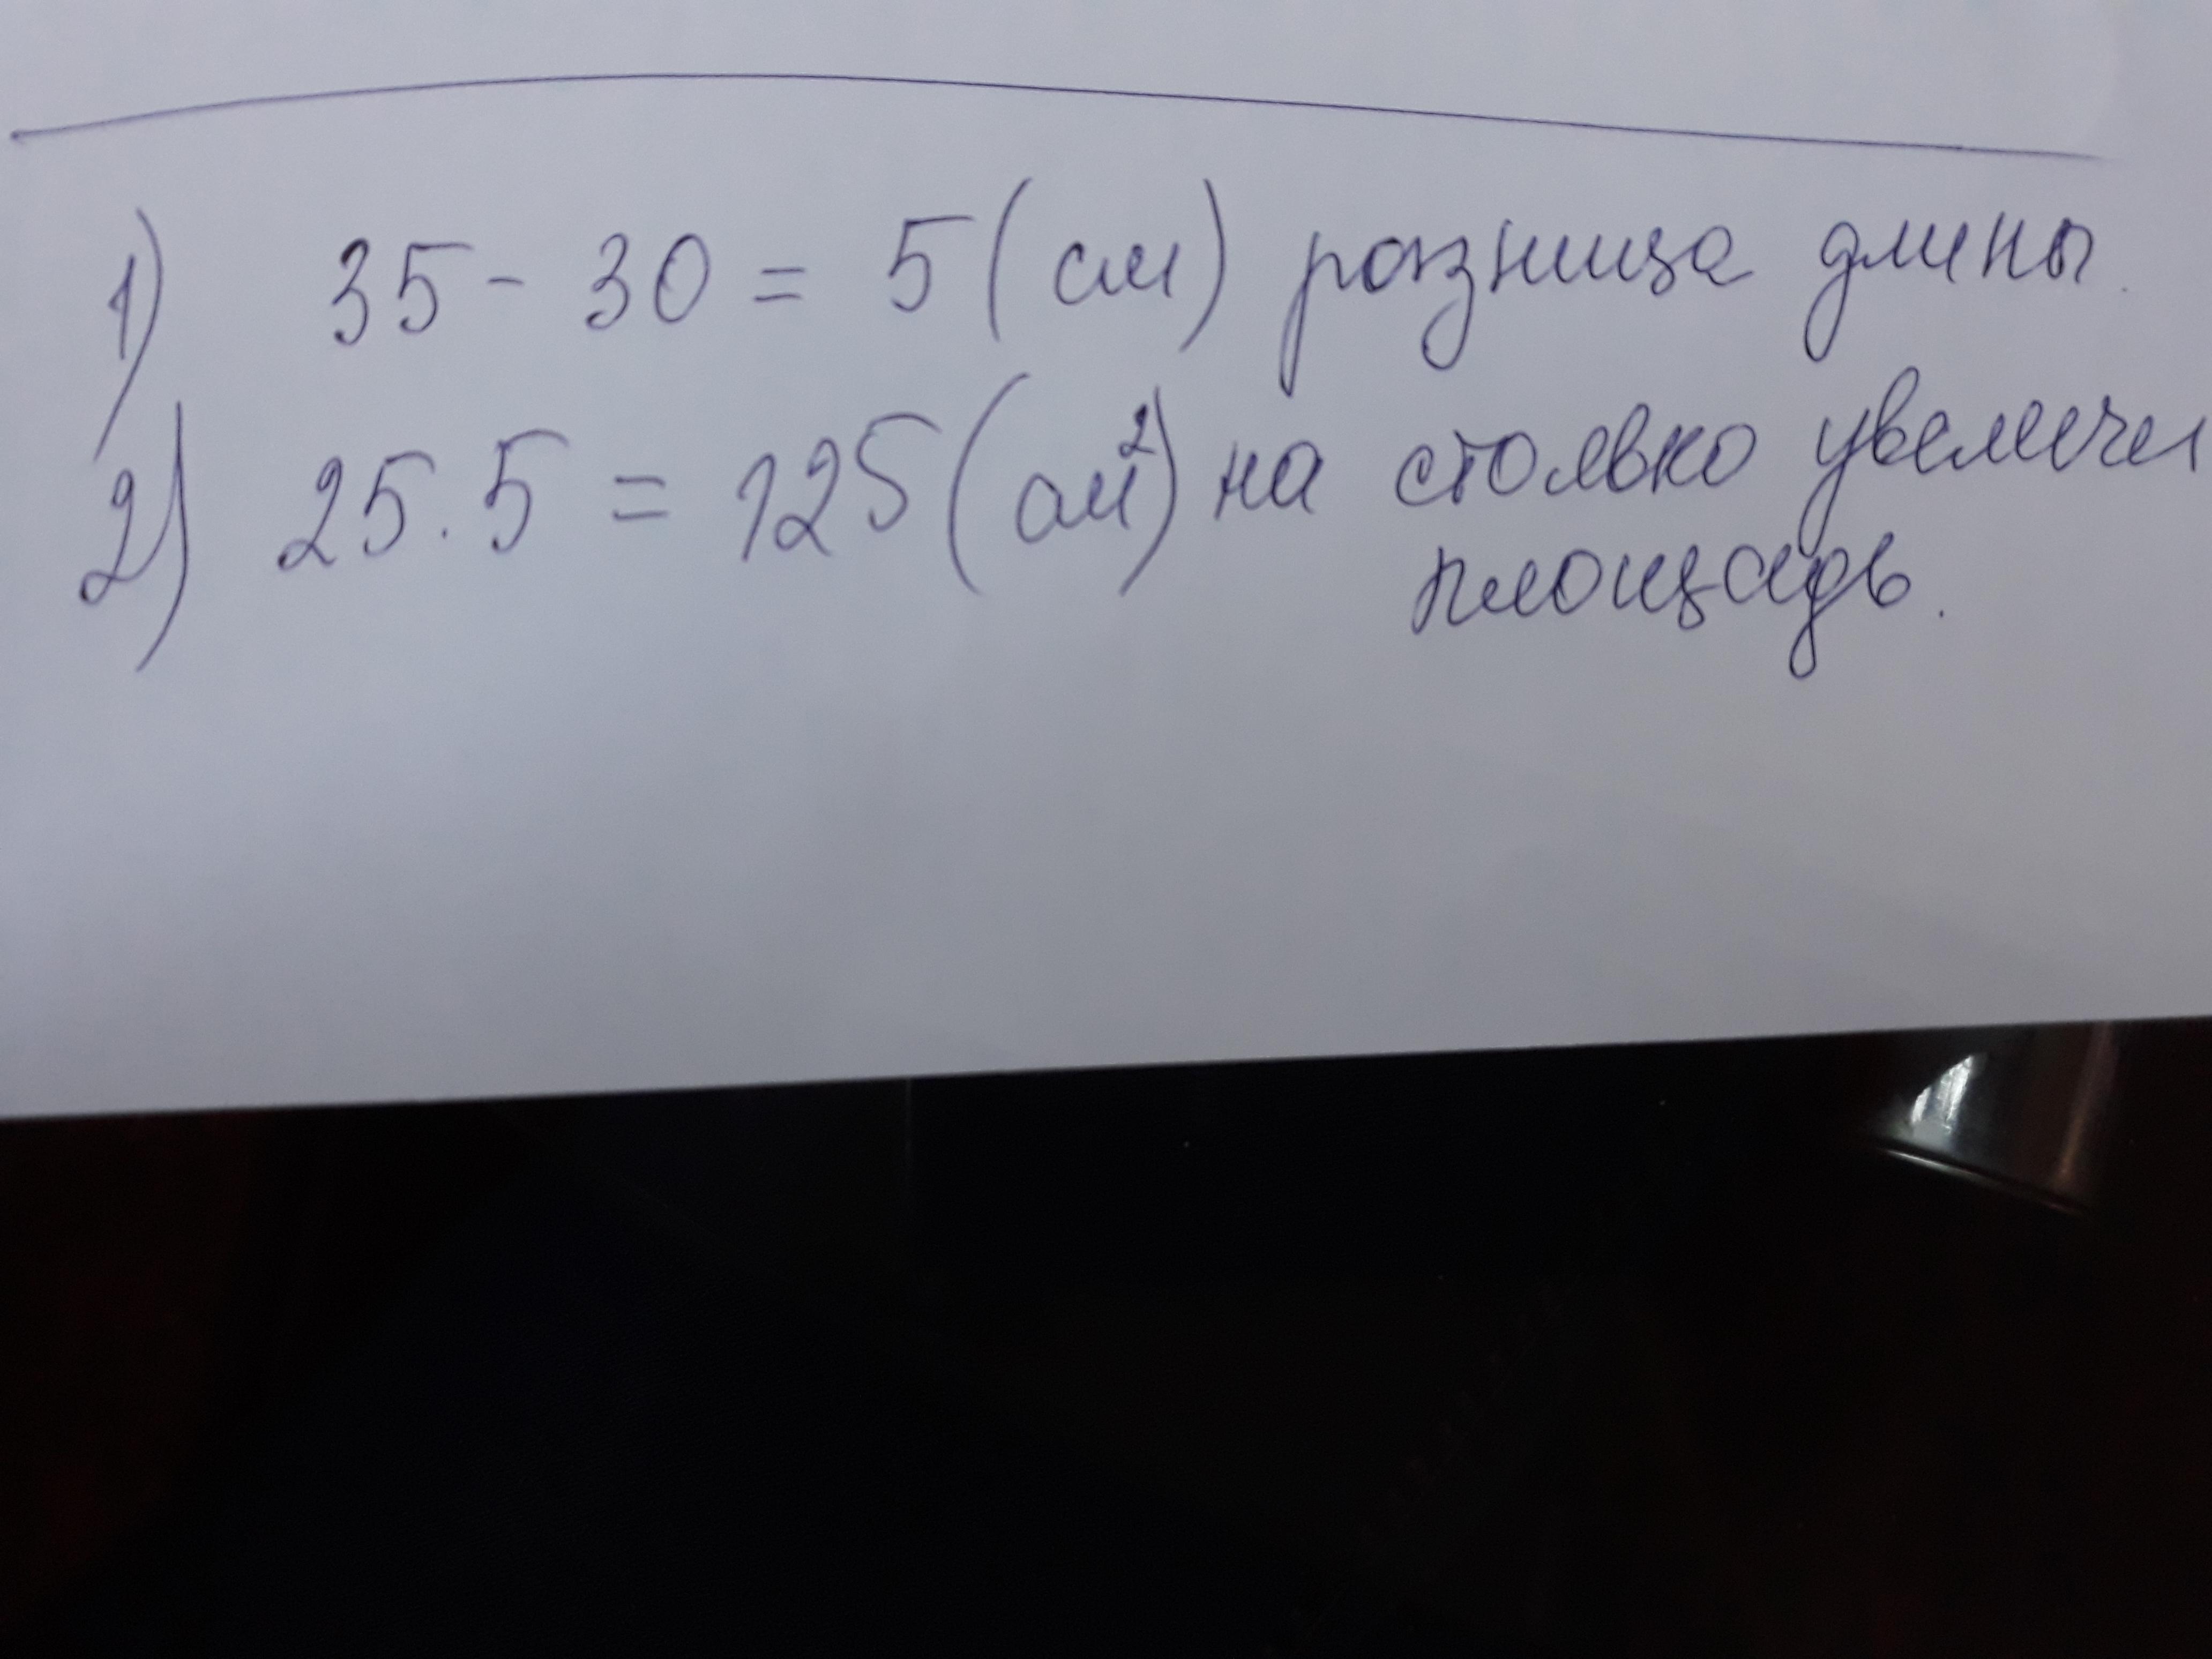 1) 35 - 30 = 5 (см) разница длины.
2) 25 . 5 = 125 (см²) на столько увеличи
площадь.